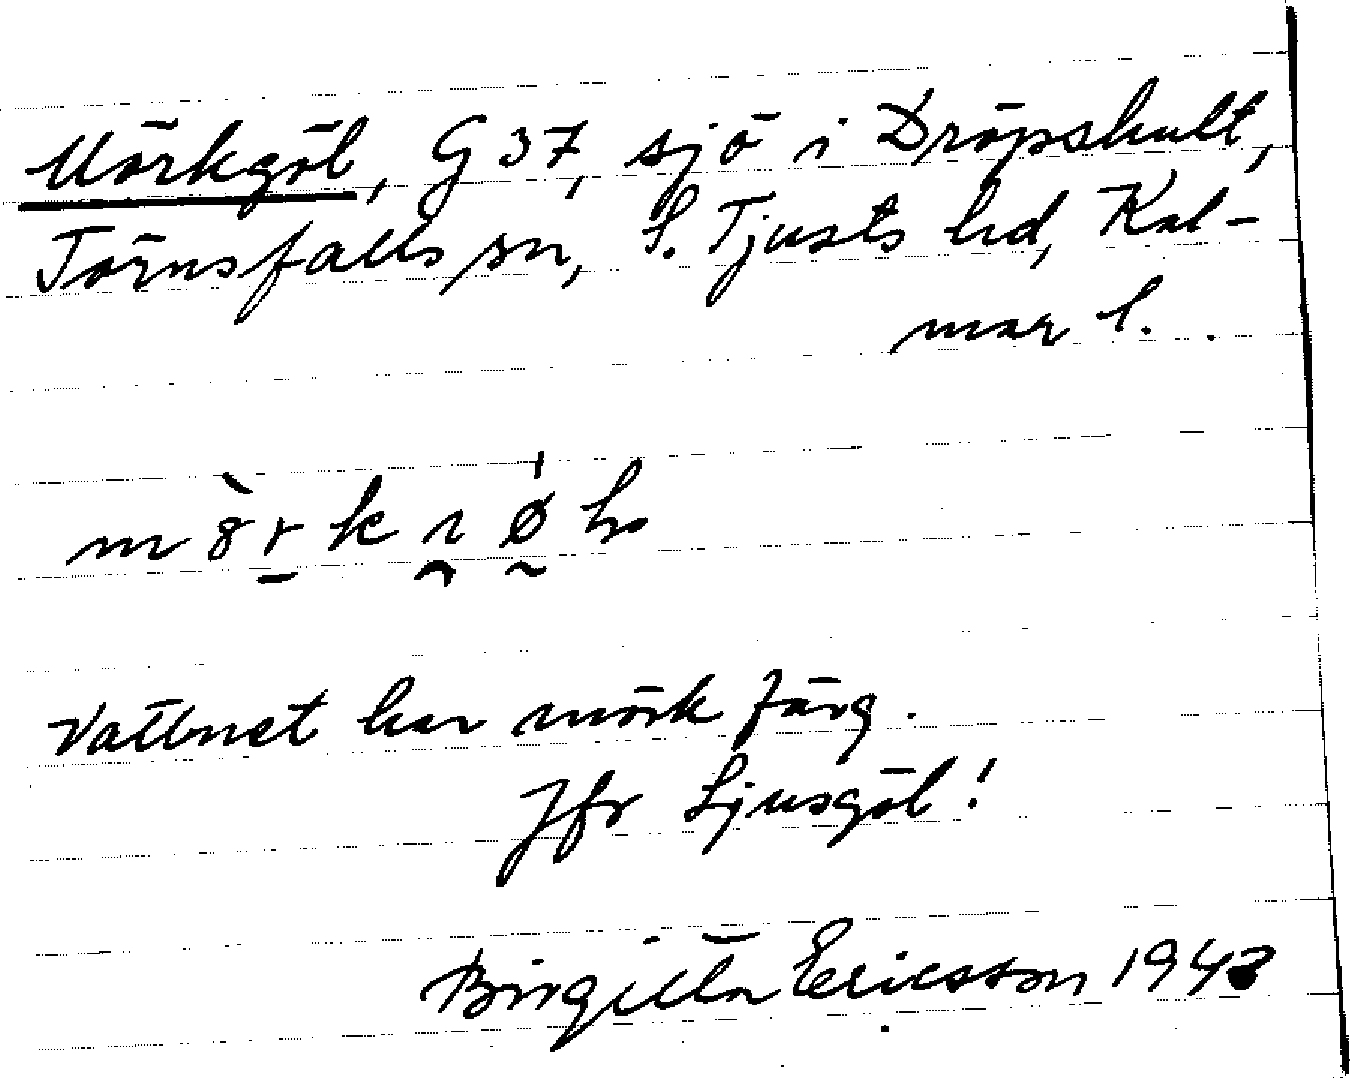 Mörkgöl, G 37, sjö i Dröpshult,
Törnsfalls sn, S. Tjusts hd, Kal-
mar l.
Vattnet har mörk färg.
Jfr Ljusgöl!
Birgitta Ericsson